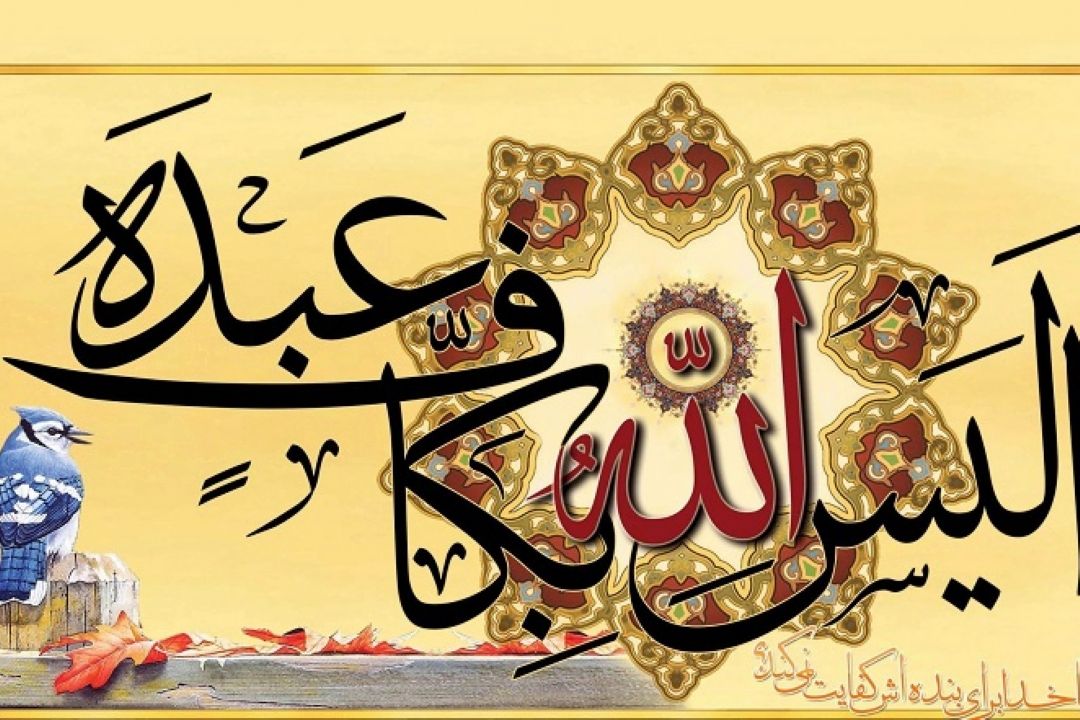 اَلَیسَ اللهُ بِکَافٍ عَبدَهُ
ا خدا برای بنده اش کفایت نمی کند؟